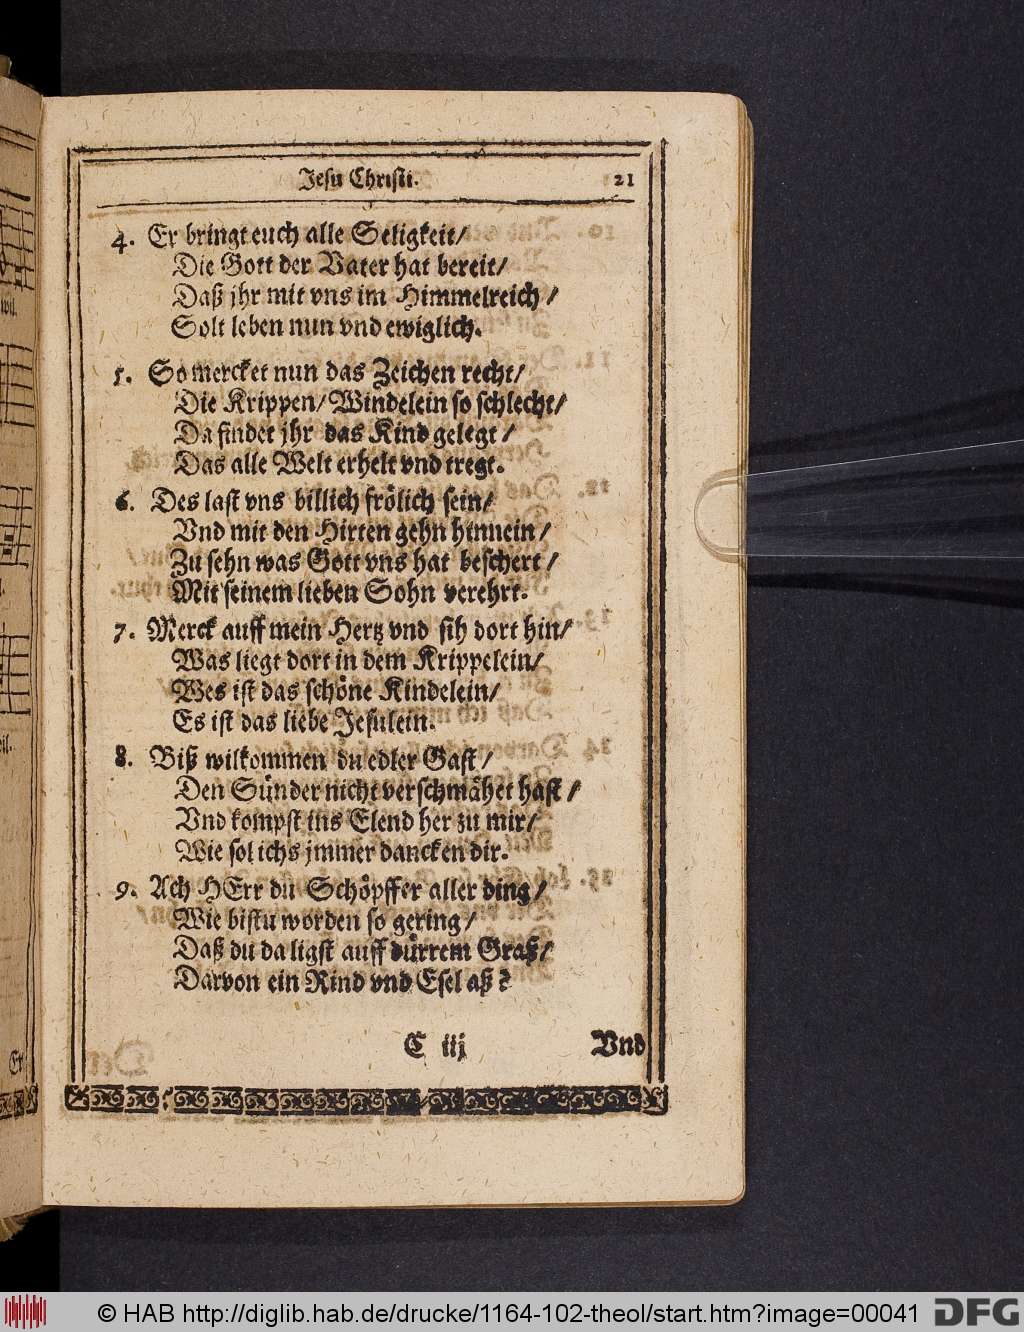 Jesu Christi. 21
4. Er bringt euch alle Seligkeit/
Die Gott der Vater hat bereit/
Daß jhr mit vns im Himmelreich/
Solt leben nun vnd ewiglich.
5. So mercket nun das Zeichen recht/
Die Krippen/ Windelein so schlecht/
Da findet jhr das Kind gelegt/
Das alle Welt erhelt vnd tregt.
6. Des last vns billich frölich sein/
Vnd mit den Hirten gehn hinnein/
Zu sehn was Gott vns hat beschert/
Mit seinem lieben Sohn verehrt.
7. Merck auff mein Hertz vnd sih dort hin/
Was liegt dort in dem Krippelein/
Wes ist das schöne Kindelein/
Es ist das liebe Jesulein.
8. Biß wilkommen du edler Gast/
Den Sünder nicht verschmähet hast/
Vnd kompst ins Elend her zu mir/
Wie sol ichs jmmer dancken dir.
9. Ach HErr du Schöpffer aller ding/
Wie bistu worden so gering/
Daß du da ligst auff dürrem Graß/
Darvon ein Rind vnd Esel aß?
C iij Vnd
wil.
eil.
Er
© HAB http://diglib.hab.de/drucke/1164-102-theol/start.htm?image=00041
DFG